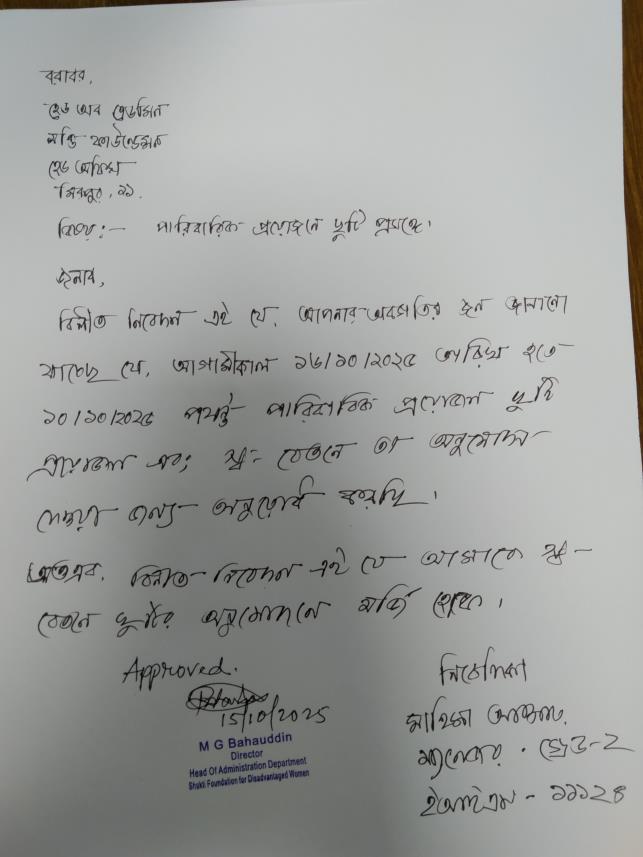 বরাবর,
হেড অব এডমিন
ফাউন্ডেশন
হেড অফিস
মিরপুর, ১১.
বিষয়:- পারিবারিক প্রয়োজনে ছুটি প্রসঙ্গে।
জনাব,
বিনীত নিবেদন এই যে, আপনার অবগতির জন্য জানানো
যাচ্ছে যে, আগামীকাল ১৬/১০/২০২৫ তারিখ হতে
পর্যন্ত পারিবারিক প্রয়োজন ছুটি
প্রয়োজন এবং স্ব- বেতনে তা অনুমোদন
দেয়ার জন্য অনুরোধ করছি।
অতএব, বিনীত নিবেদন এই যে আমাকে স্ব-
বেতনে ছুটির অনুমোদনে মর্জি হোক।
Approved.
15/10/2025
M G Bahauddin
Director
Head Of Administration Department
Shukti Foundation for Disadvantaged Women
নিবেদিকা
ম্যানেজার - গ্রেড-2